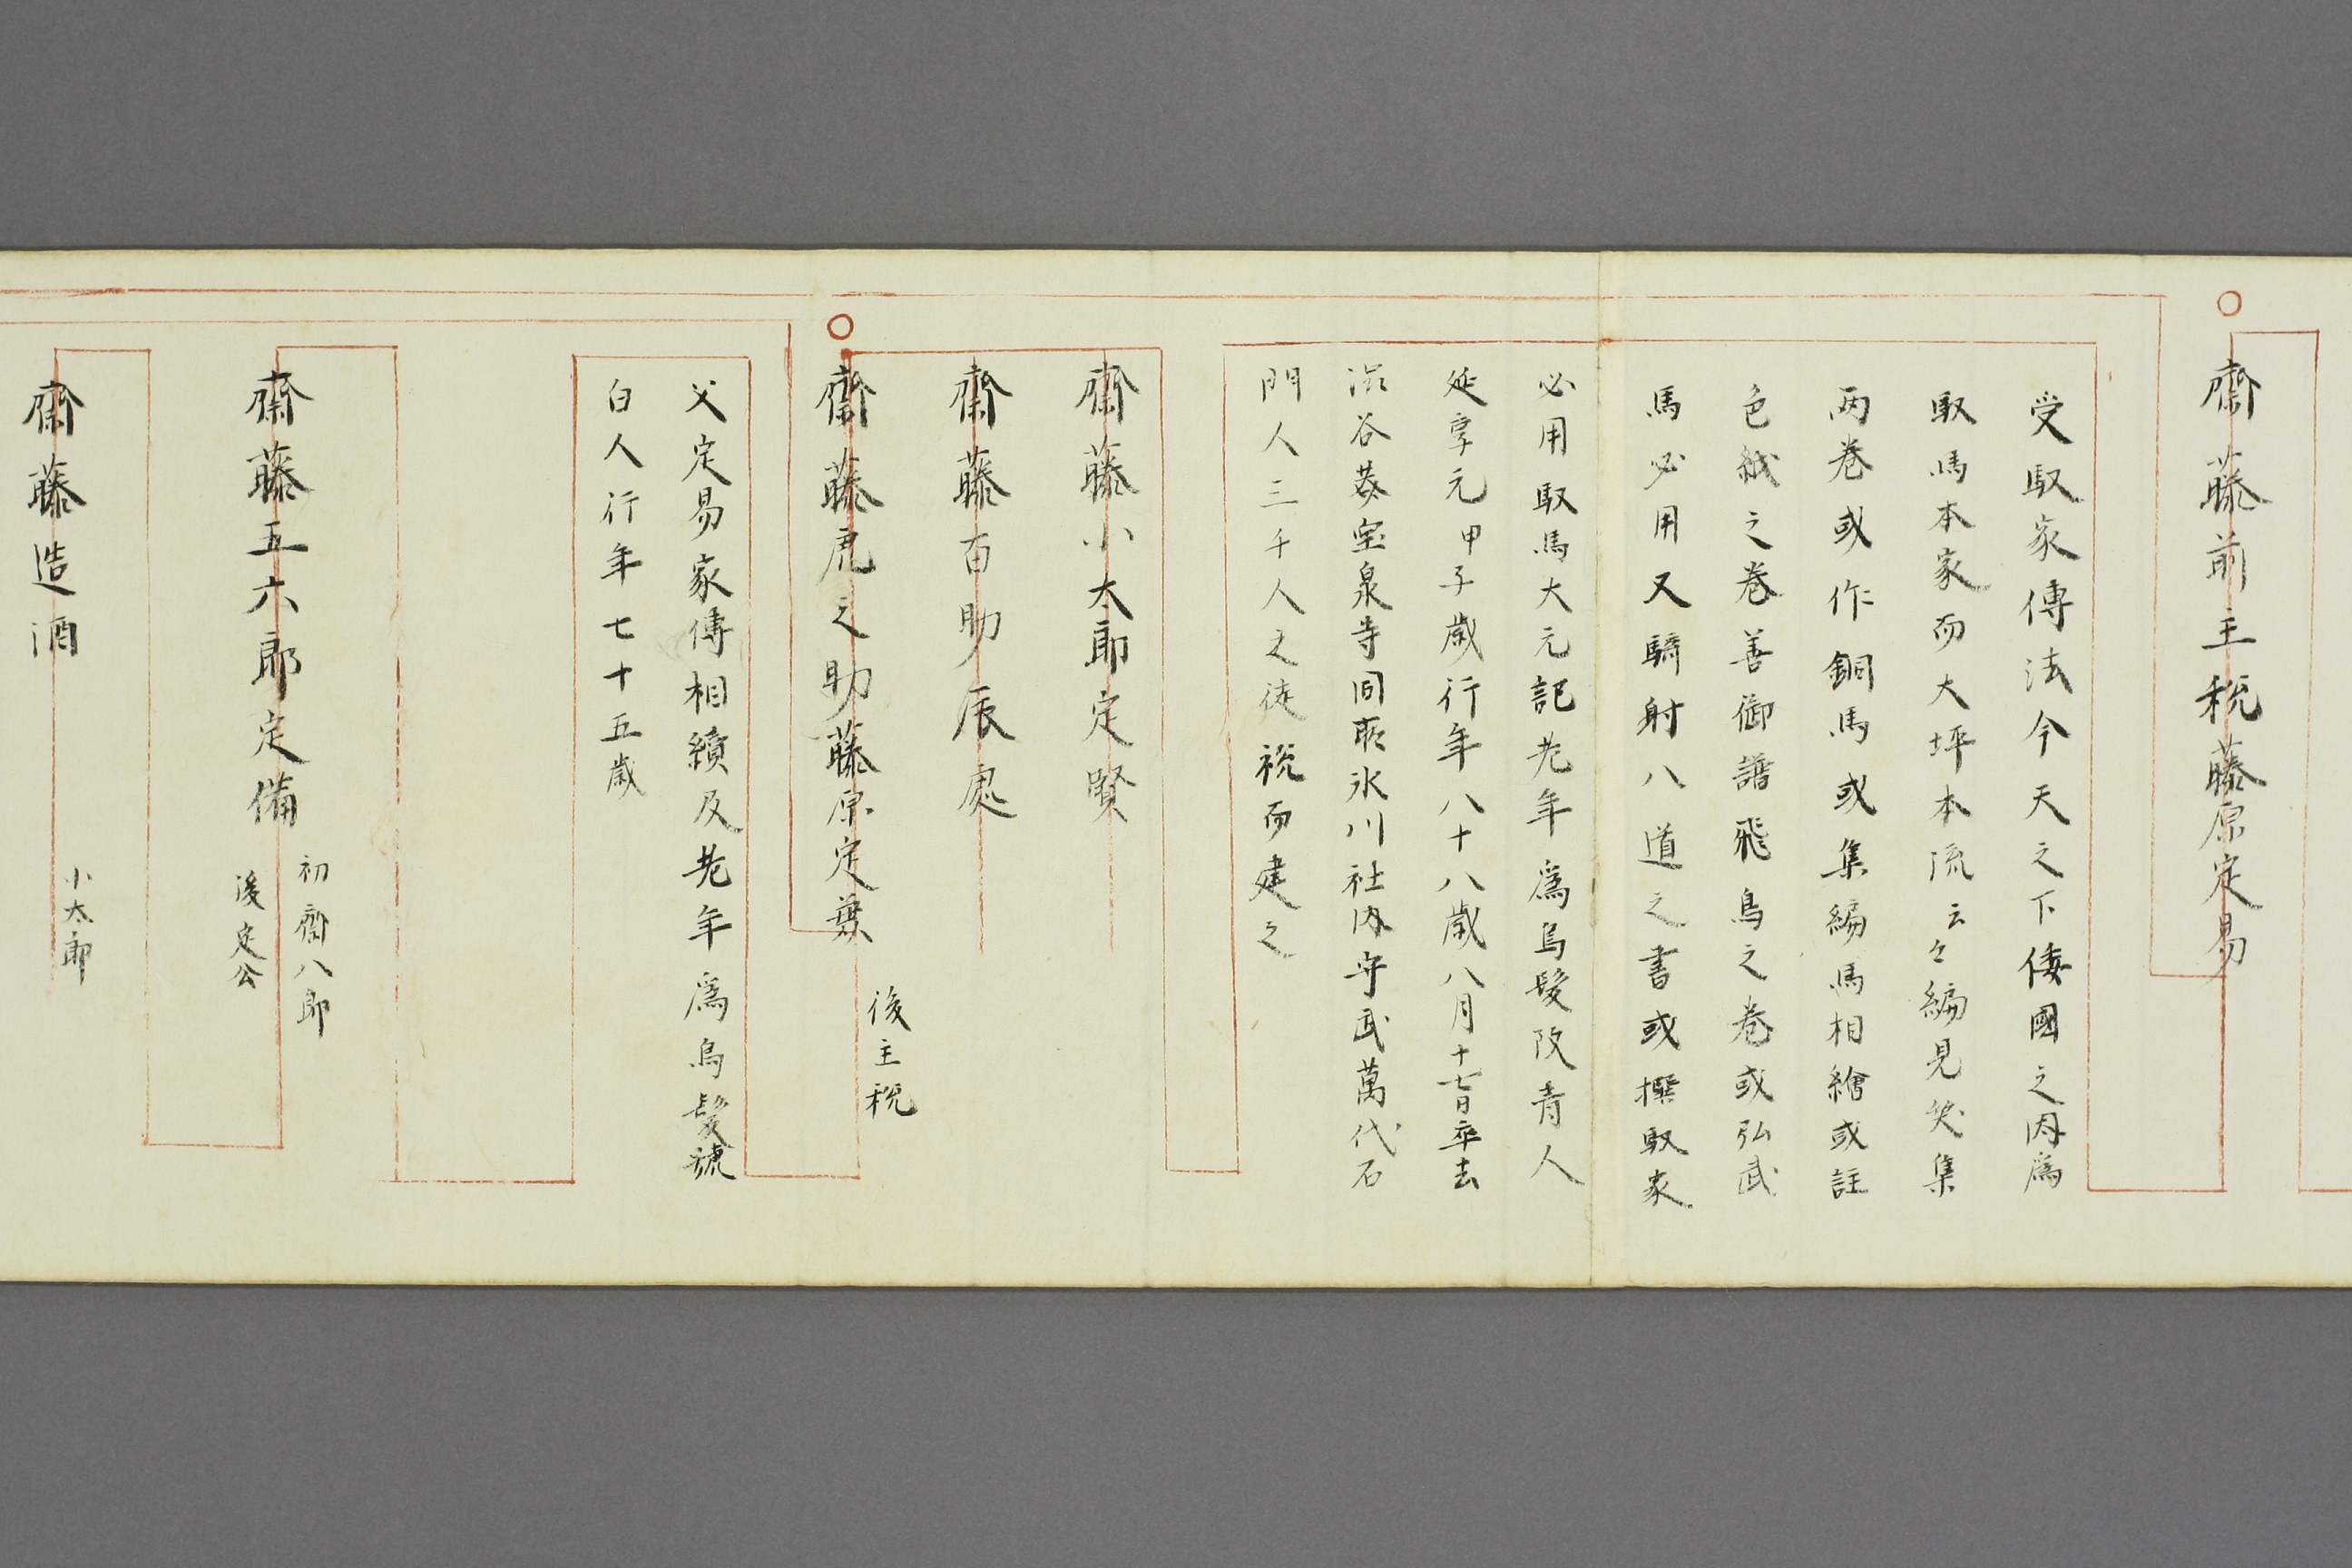 齋藤前主税藤原定易
受馭家傳法今天之下倭國之内為
馭馬本家而大坪本流云々編見笑集
两卷或作銅馬或集編馬相繪或註
色紙之卷善御譜飛鳥之卷或弘武
馬必用又騎射八道之書或撰馭家
必用馭馬大元記老年爲烏髮改青人
延享元甲子歳行年八十八歳八月十七日卒去
渋谷宝泉寺同所氷川社内守武萬代石
門人三千人之徒祝而建之
齋藤小太郎定賢
齋藤百助辰
齋藤虎之助藤原定兼
後主税
父定易家傳相續及老年為烏髮號
白人行年七十五歳
齋藤五六郎定備
初齋八郎
後定公
齋藤造酒
小太郎